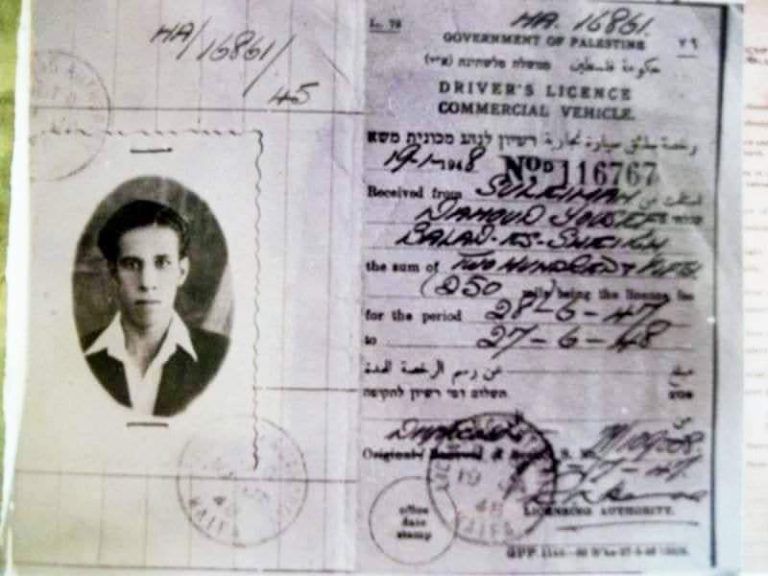 HA/16861/
45
HA. 16861.
L. 79
GOVERNMENT OF PALESTINE
٧٩
حكومة فلسطين ממשלת פלשתינה (א״י)
DRIVER'S LICENCE
COMMERCIAL VEHICLE.
رخصة سائق سيارة تجارية רשיון לנהג מכונית משא
19-1-1948 No. D 116767
Received from SULEIMAN
DAHOUD YOUSEF
BALAD-ES-SHEIKH
the sum of TWO HUNDRED & FIFTY
(250 mils) being the licence fee
for the period 28-6-47
to 27-6-48
عن رسم الرخصة لمدة
תשלום דמי רשיון לתקופה
Original
-7-47
LICENSING AUTHORITY.
office
date
stamp
HAIFA
19
48
HAIFA